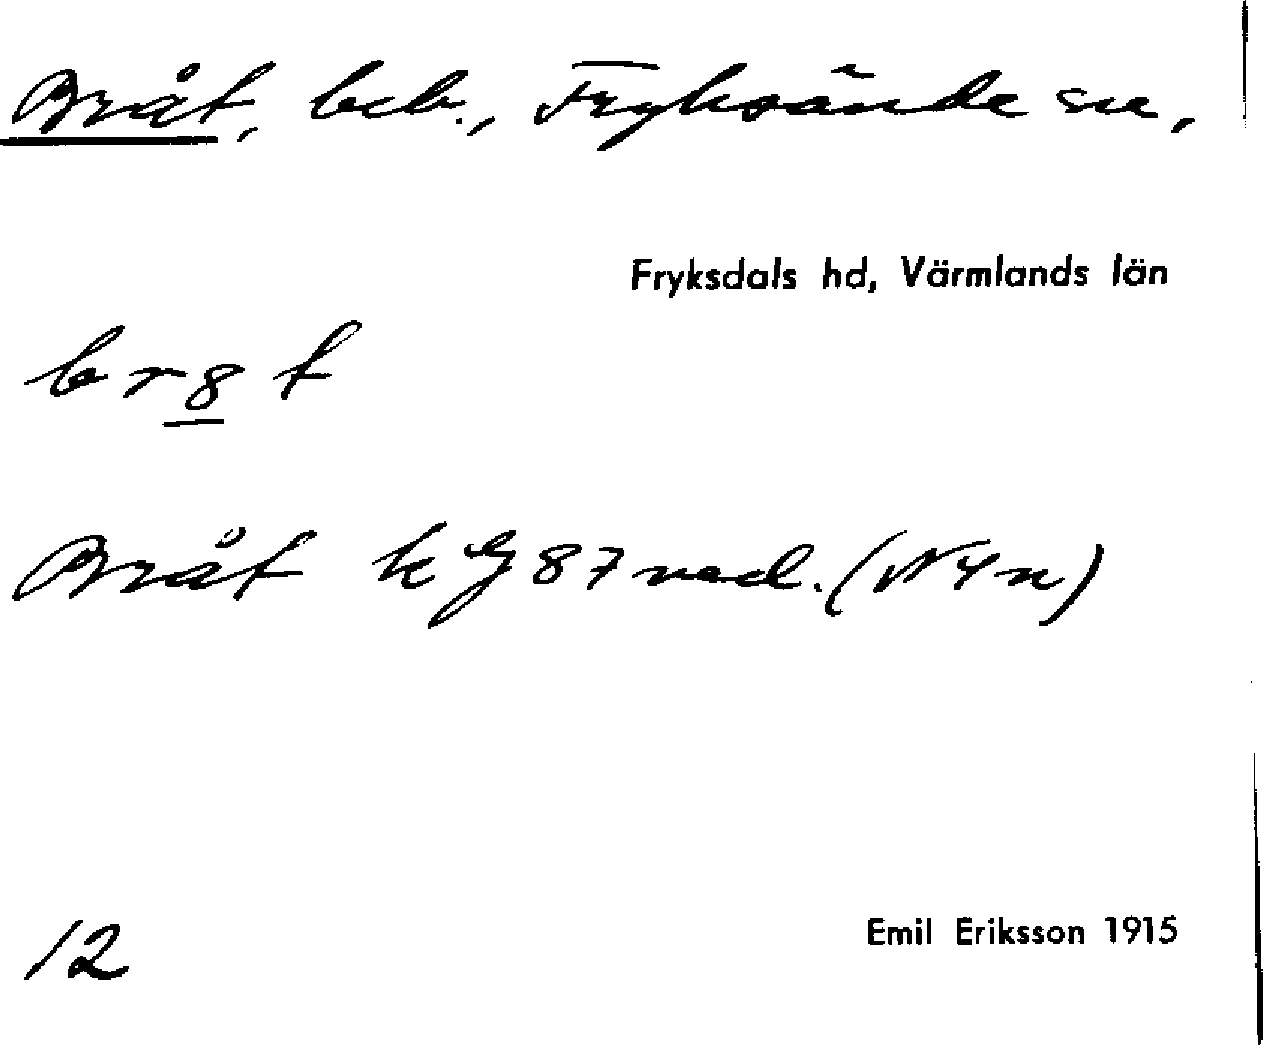 Bråt, beb., Fryksände sn,
Fryksdals hd, Värmlands län
br8t
Bråt k 87 ned. (N4n)
12
Emil Eriksson 1915